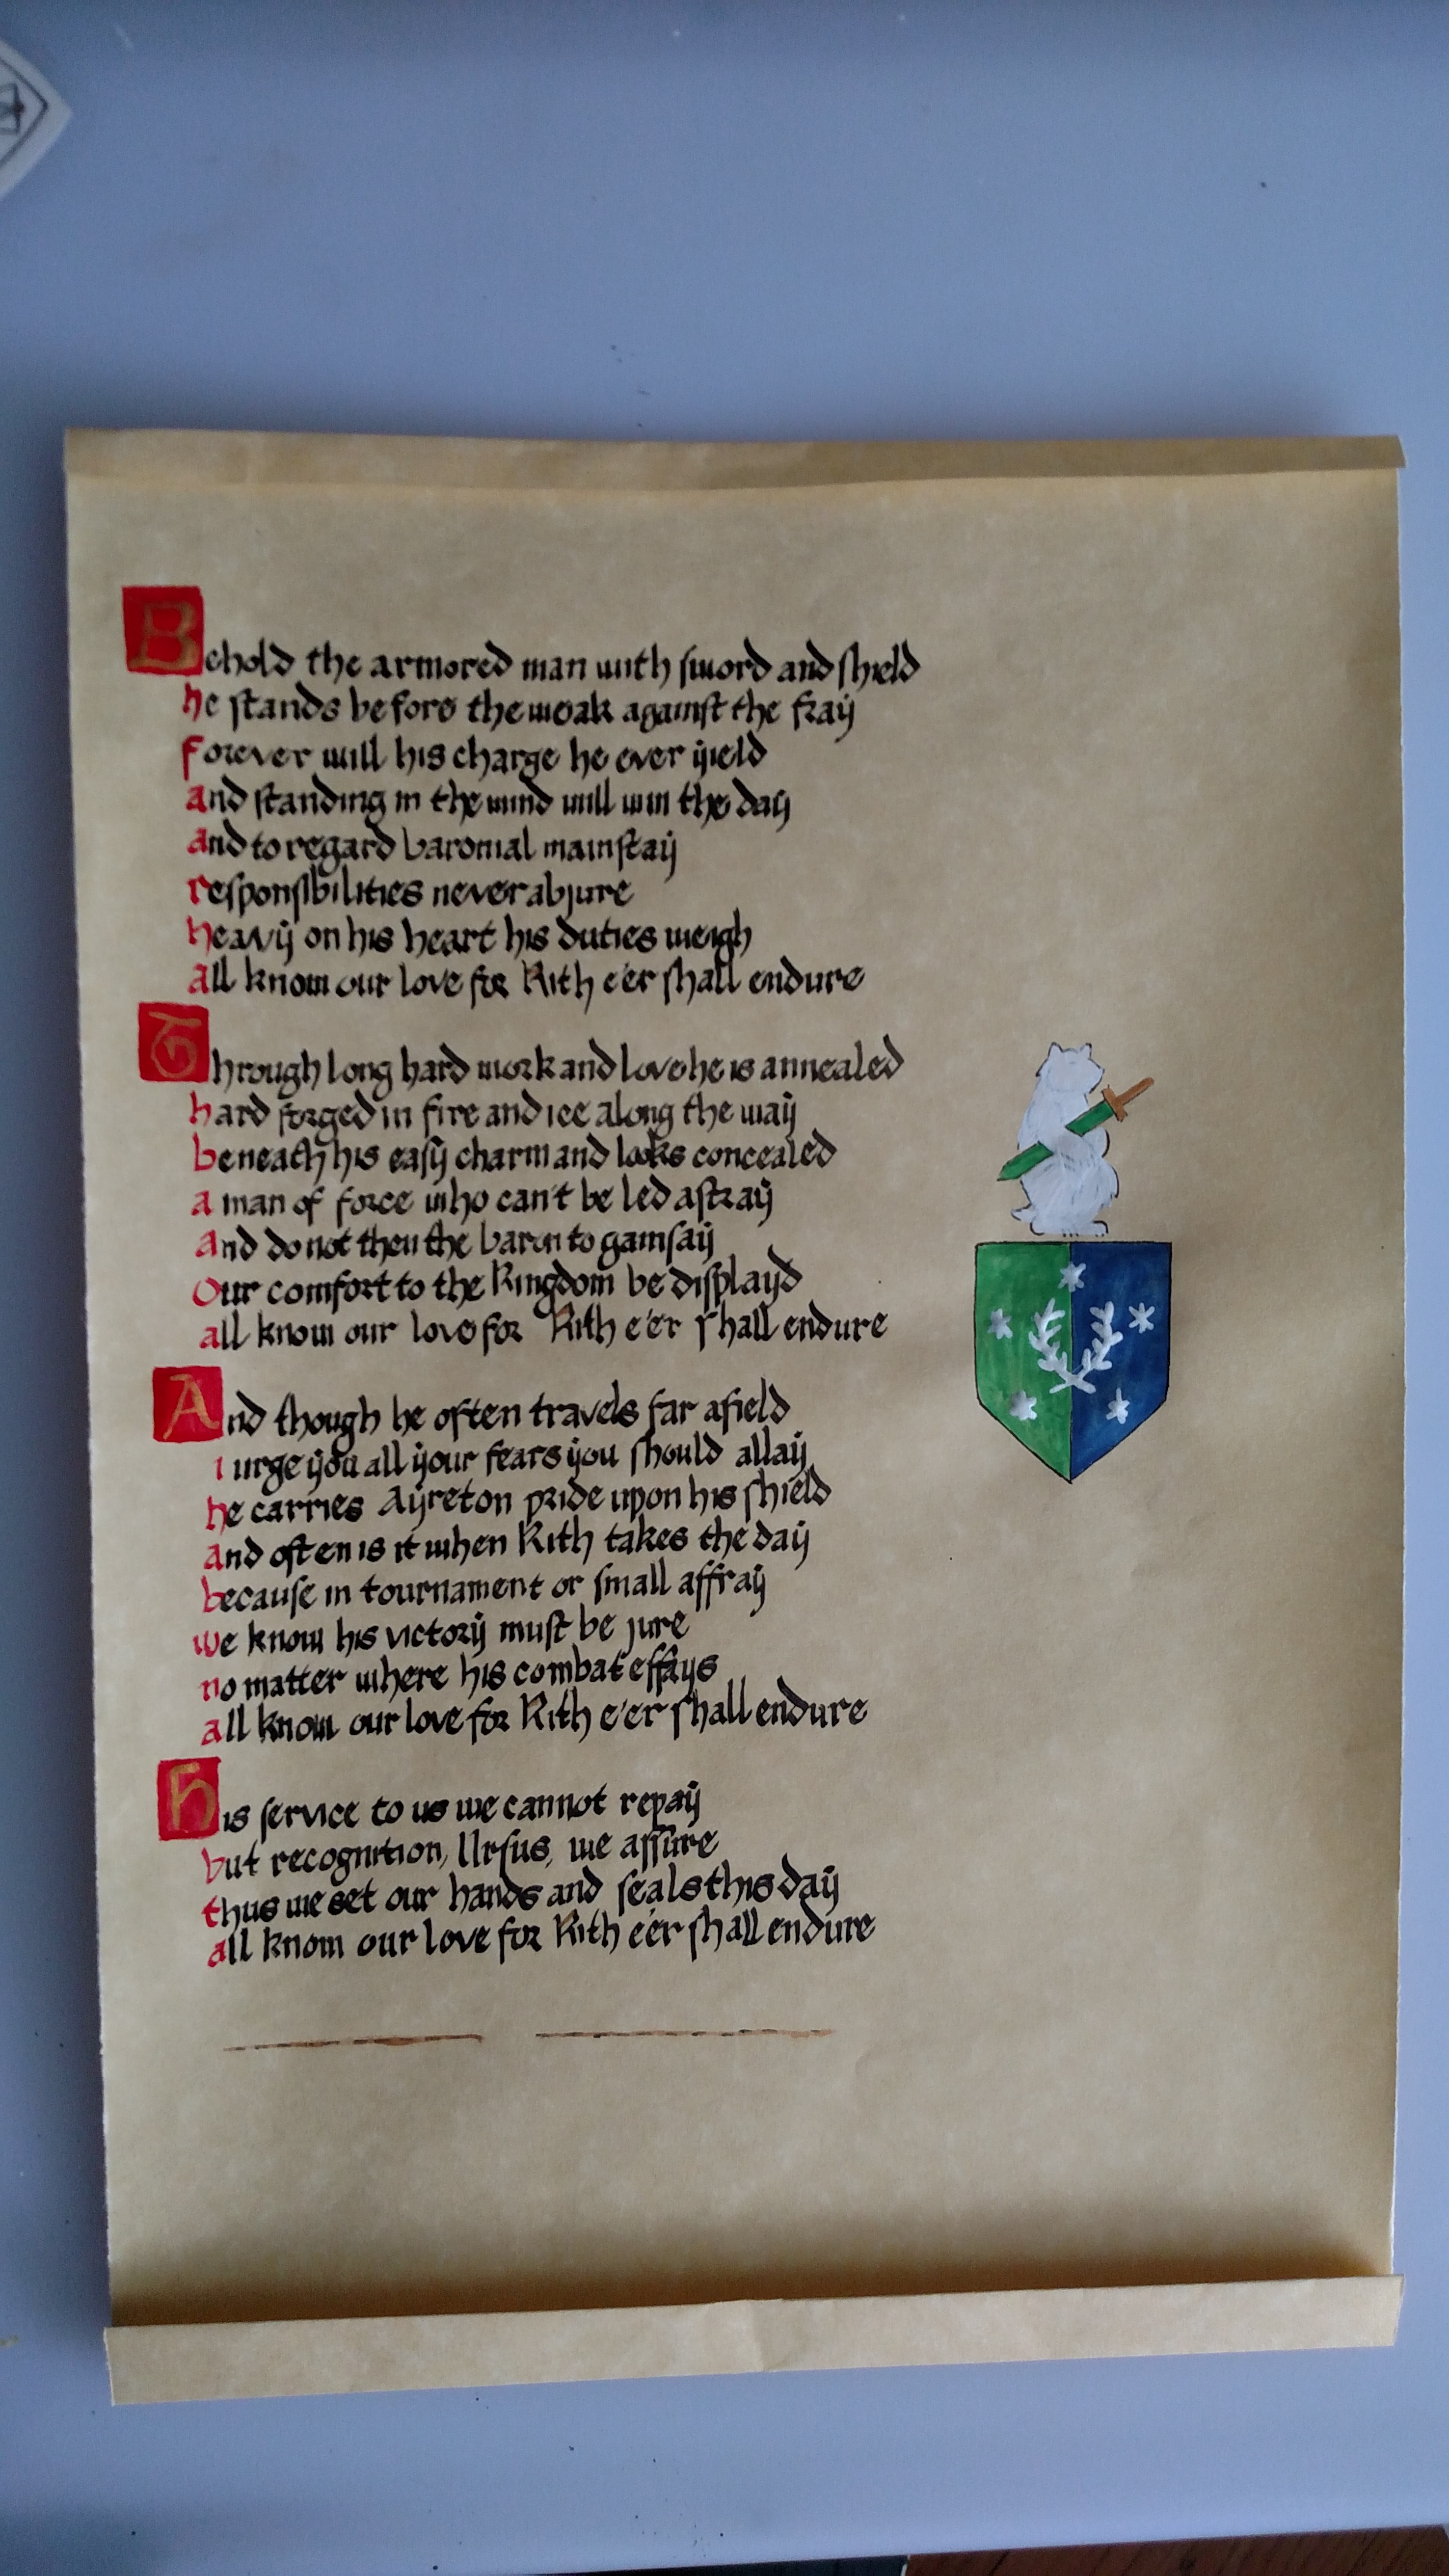 Behold the armored man with sword and shield
he stands before the weak against the fray
forever will his charge he ever yield
and standing in the wind will win the day
and to regard baronial mainstay
responsibilities never abjure
heavy on his heart his duties weigh
all know our love for Rith e'er shall endure
Through long hard work and love he is annealed
hard forged in fire and ice along the way
beneath his easy charm and looks concealed
a man of force who can't be led astray
and do not then the baron to gainsay
our comfort to the Kingdom be displayd
all know our love for Rith e'er shall endure
And though he often travels far afield
i urge you all your fears you should allay
he carries Ayreton pride upon his shield
and often is it when Rith takes the day
because in tournament or small affray
we know his victory must be jure
no matter where his combat essays
all know our love for Rith e'er shall endure
His service to us we cannot repay
but recognition, Ursus, we assure
thus we set our hands and seals this day
all know our love for Rith e'er shall endure